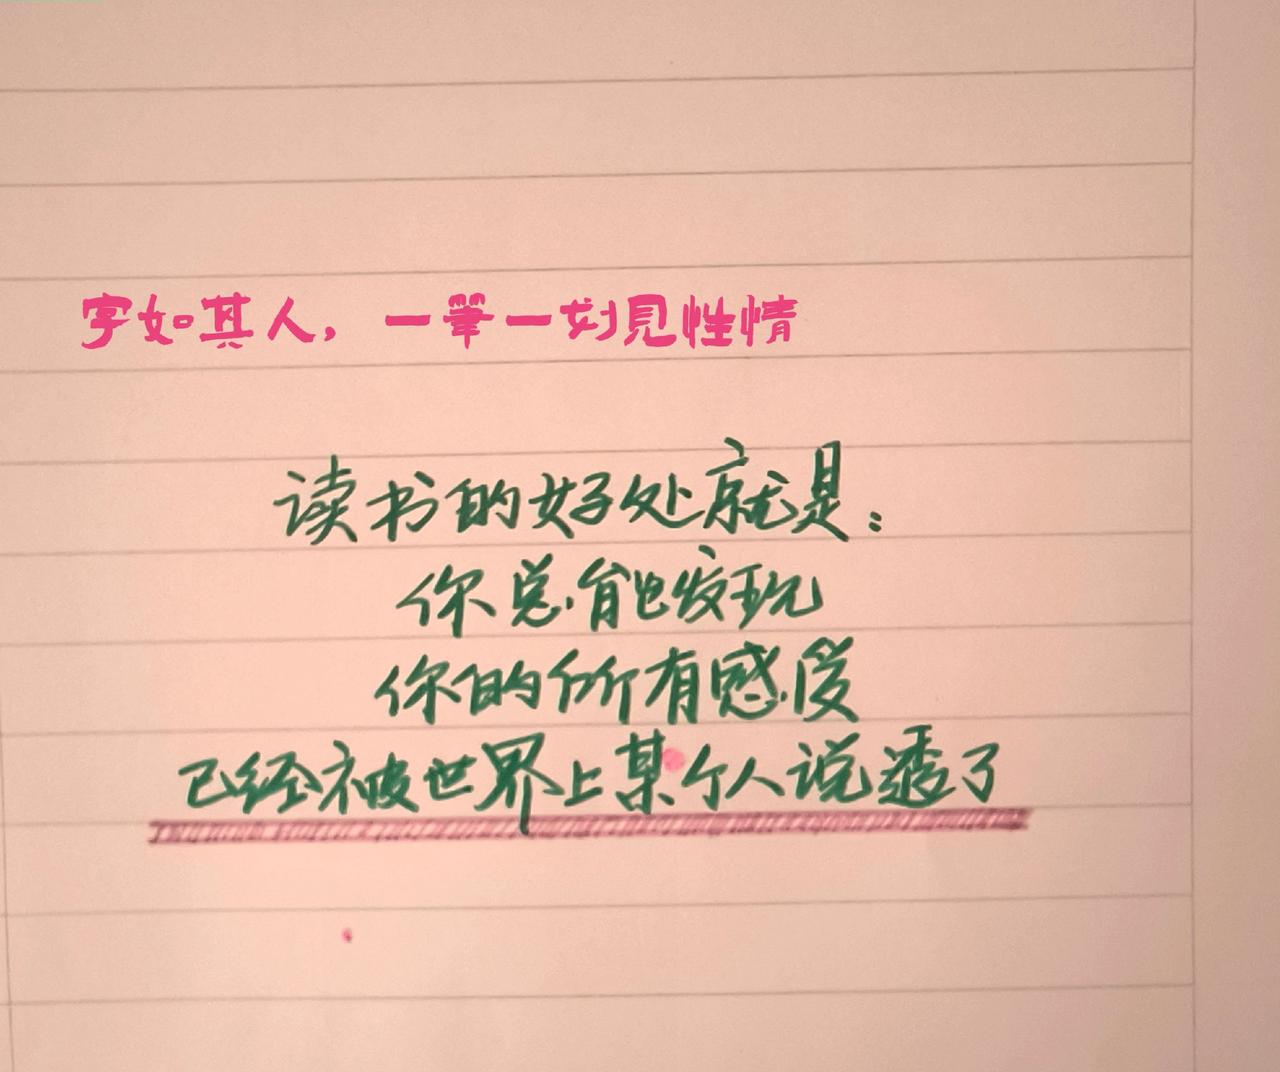 字如其人，一筆一划见性情
读书的好处就是：
你总能发现
你的所有感受
已经被世界上某个人说透了